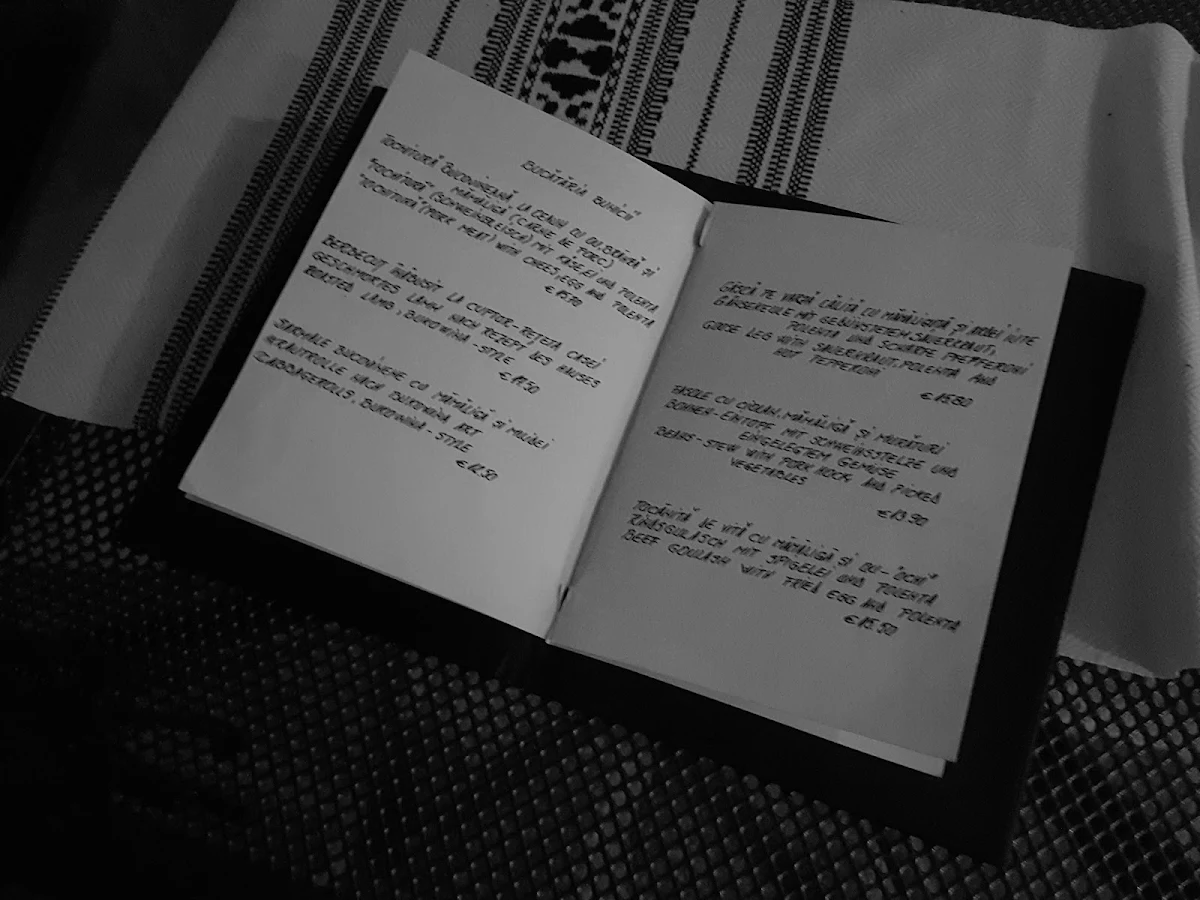 BUCĂTĂRIA BUNICII"
TOCHITURĂ BUCOVINEANĂ LA CEAUN CU OU, BRÂNZĂ ȘI
MĂMĂLIGĂ (CARNE DE PORC)
"TOCHITURĂ" (SCHWEINEFLEISCH) MIT KÄSE, EI UND POLENTA
"TOCHITURĂ" (PORK MEAT) WITH CHEES, EGG AND POLENTA
BERBECUȚ ÎNĂBUȘIT LA CUPTOR-REȚETA CASEI
GESCHMORTES LAMM NACH REZEPT DES HAUSES
ROASTED LAMB, BUKOWINA-STYLE
SARMALE BUCOVINENE CU MĂMĂLIGĂ ȘI
KRÄUTROLLE NACH BUKOWINA ART
CABBAGEROLLS, BUKOWINA-STYLE
€12.50
GÂSCĂ PE VARZĂ CĂLITĂ CU MĂMĂLIGUȚĂ ȘI ARDEI IUTE
GÄNSEKEULE MIT GEDÜNSTETEM SAUERKRAUT,
POLENTA UND SCHARFE PFEFFERONI
GOOSE LEG WITH SAUERKRAUT, POLENTA AND
HOT PEPPERONI
€15.80
FASOLE CU CIOLAN, MĂMĂLIGĂ ȘI MURĂTURI
BOHNEN-EINTOPF MIT SCHWEINSSTELZE UND
EINGELEGTEM GEMÜSE
BEANS-STEW WITH PORK HOCK AND PICKLED
VEGETABLES
€13.90
TOCĂNIȚĂ DE VITĂ CU MĂMĂLIGĂ ȘI OU-"OCHI"
RINDSGULASCH MIT SPIGELEI UND POLENTA
BEEF GOULASH WITH FRIED EGG AND POLENTA
€15.50